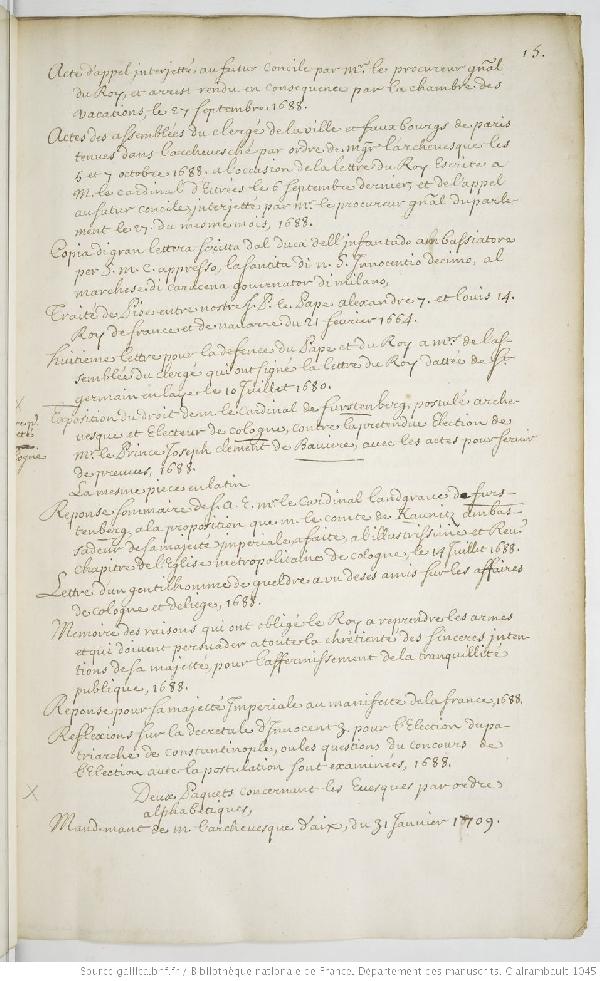 15.
Acte d'appel interjetté au futur concile par mr. le procureur gñal
du Roy, et arrest rendu en consequence par la chambre des
vacations, le 27 septembre, 1688.
Actes des assemblées du clergé de la ville et fauxbourgs de paris
tenues dans l'archevesché par ordre de mgr l'archevesque les
5 et 7 octobre 1688. a l'occasion de la lettre du Roy Escrite a
M. le cardinal d'Etrées le 6 septembre dernier, et de l'appel
au futur concile, interjetté par mr. le procureur gñal du parle-
ment le 27. du mesme mois, 1688.
Copia di gran lettera scritta dal duca dell'infantado ambassiatore
per S. m. C. appresso, la santita di n. S. Innocentio decimo, al
marchese di caracena gouernator di milano,
Traité de Pise entre nostre S. P. le Pape alexandre 7. et louis 14.
Roy de france et de nauarre du 21 feurier 1664.
huitieme lettre pour la defence du Pape et du Roy a mrs. de l'as-
semblée du clergé qui ont signé la lettre du Roy dattée de St.
germain en laye le 10 Juillet 1680.
Exposition du droit de m. le cardinal de furstenberg, postulé arche-
uesque et Electeur de cologne, contre la pretendue Election de
mr. le Prince Joseph clement de Bauiere, auec les actes pour seruir
de preuues, 1688.
La mesme piece en latin
Reponse sommaire de S. A. E. mr. le cardinal landgraue de furs-
tenberg, a la proposition que m. le comte de Kauniz ambas-
sadeur de sa majesté imperiale, a faite, a l'illustrissime et Reu.
chapitre de l'Eglise metropolitaine de cologne, le 14 Juillet 1688.
Lettre d'un gentilhomme de gueldre a un de ses amis sur les affaires
de cologne et de liege, 1688.
Memoire des raisons qui ont obligé le Roy a reprendre les armes
et qui doiuent persuader a toute la chrétienté des sinceres inten-
tions de sa majesté, pour l'affermissement de la tranquillité
publique, 1688.
Reponse pour sa majesté Imperiale au manifeste de la france, 1688.
Reflexions sur la decretale d'Innocent 3. pour l'Election du pa-
triarche de constantinople, ou les questions du concours de
l'Election auec la postulation sont examinées, 1688.
Deux Paquets concernant les Euesques par ordre
alphabetiques,
Mandemant de m. l'archeuesque d'aix, du 31 Janvier 1709.
Source gallica.bnf.fr / Bibliothèque nationale de France. Département des manuscrits. Clairambault 1045